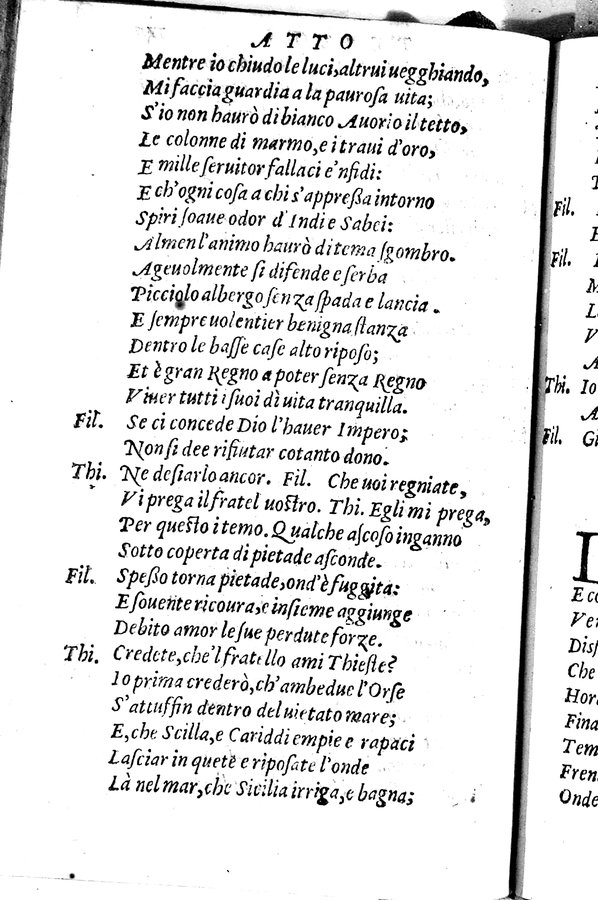 ATTO
Mentre io chiudo le luci, altrui uegghiando,
Mi faccia guardia a la pauroſa uita;
S'io non haurò di bianco Auorio il tetto,
Le colonne di marmo, e i traui d'oro,
E mille ſeruitor fallaci e'nfidi:
E ch'ogni coſa a chi s'appreßa intorno
Spiri ſoaue odor d'Indi e Sabei:
Almen l'animo haurò di tema ſgombro.
Ageuolmente ſi difende e ſerba
Picciolo albergo ſenza ſpada e lancia.
E ſempre uolentier benigna ſtanza
Dentro le baſſe caſe alto ripoſo;
Et è gran Regno a poter ſenza Regno
Viuer tutti i ſuoi dì uita tranquilla.
Fil. Se ci concede Dio l'hauer Impero;
Non ſi dee rifiutar cotanto dono.
Thi. Ne deſiarlo ancor. Fil. Che uoi regniate,
Vi prega il fratel uoſtro. Thi. Egli mi prega,
Per queſto i temo. Qualche aſcoſo inganno
Sotto coperta di pietade aſconde.
Fil. Speßo torna pietade, ond'è fuggita:
E ſouente ricoura, e inſieme aggiunge
Debito amor le ſue perdute forze.
Thi. Credete, che'l fratello ami Thieſte?
Io prima crederò, ch'ambedue l'Orſe
S'attuffin dentro del uietato mare;
E, che Scilla, e Cariddi empie e rapaci
Laſciar in quete e ripoſate l'onde
Là nel mar, che Sicilia irriga, e bagna;
Fil.
E
Fil.
M
L
V
A
Thi. Io
A
Fil. Gi
E co
Ver
Diſſ
Che
Hor
Fina
Tem
Fren
Onde